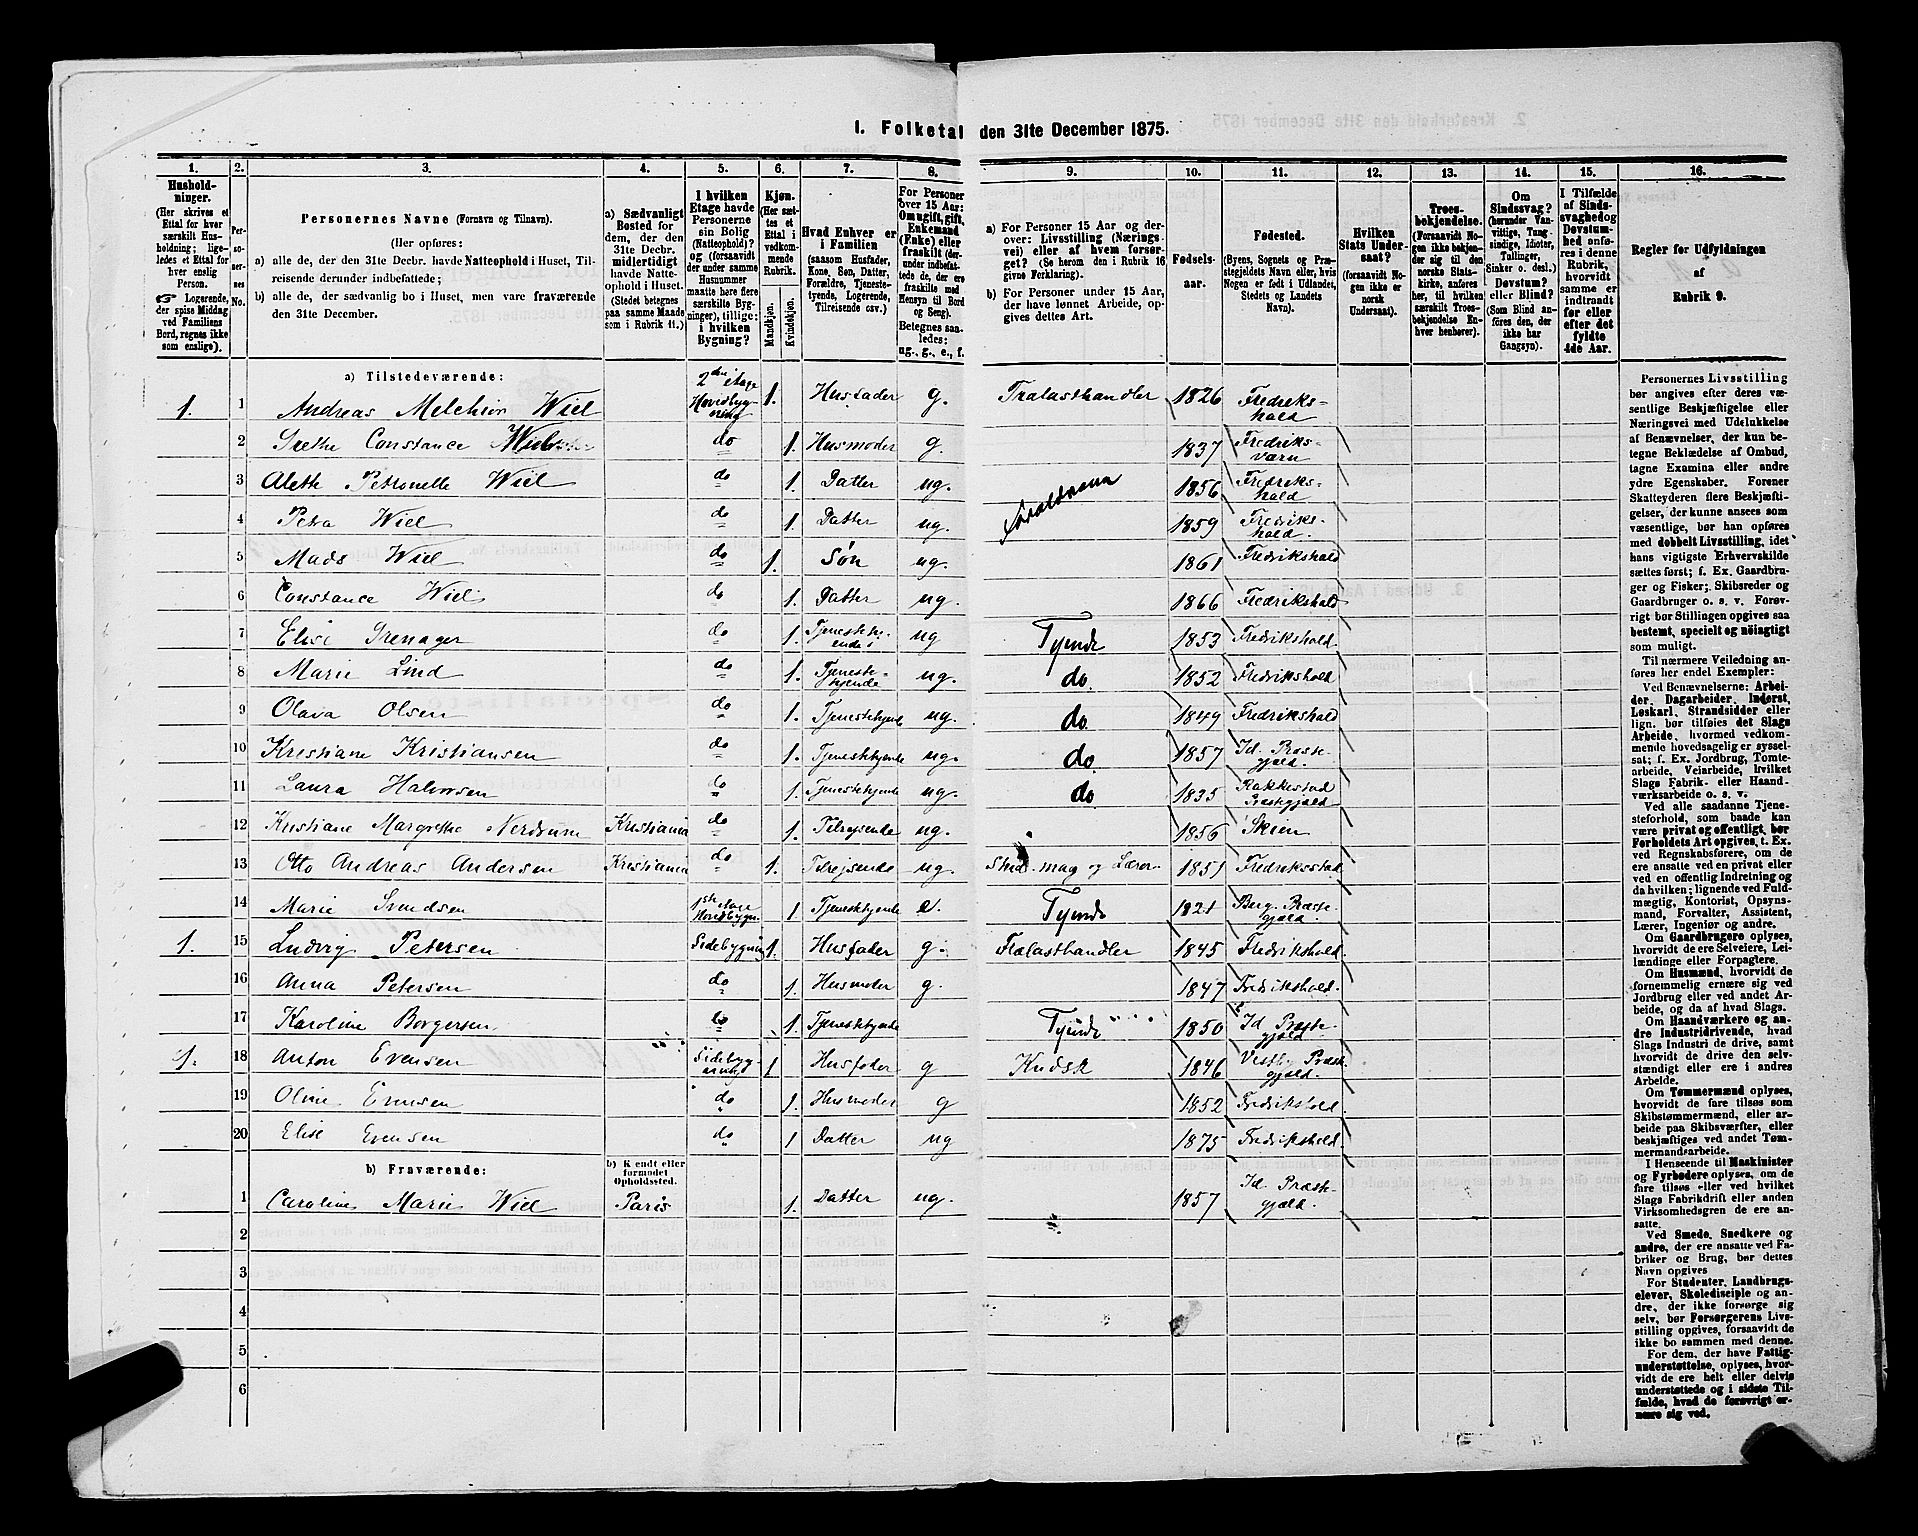 I. Folketal den 31te December 1875.
1. 2. 3. 4. 5. 6. 7. 8. 9. 10. 11. 12. 13. 14. 15. 16.
Hushold-
ninger.
(Her skrives et
Ettal for hver
særskilt Hus-
holdning; lige-
ledes et Ettal
for hver enslig
Person.
☞ Logerende,
der spise Middag
ved Familiens
Bord, regnes ikke
som enslige).
Per-
so-
ner-
nes
No.
Personernes Navne (Fornavn og Tilnavn).
(Her opføres:
a) alle de, der den 31te Decbr. havde Natteophold i Huset, Til-
reisende derunder indbefattede;
b) alle de, der sædvanlig bo i Huset, men vare fraværende
den 31te December.
a) Sædvanligt
Bosted for
dem, der den
31te Decbr.
midlertidigt
havde Natte-
ophold i Huset.
(Stedet betegnes
paa samme Maade
som i Rubrik 11.)
I hvilken
Etage havde
Personerne
sin Bolig
(Natteophold)?
og (forsaavidt
der under samme
Husnummer
maatte høre flere
særskilte Byg-
ninger), tillige:
i hvilken
Bygning?
Kjøn.
(Her sæt-
tes et
Ettal i
vedkom-
mende
Rubrik.
Mandkjøn.
Kvindekjøn.
Hvad Enhver er
i Familien
(saasom Husfader,
Kone, Søn, Datter,
Forældre, Tjeneste-
tyende, Logerende,
Tilreisende osv.)
For Personer
over 15 Aar:
Om ugift, gift,
Enkemand
(Enke) eller
fraskilt (der-
under indbefat-
tede de, der ere
fraskilte med
Hensyn til Bord
og Seng).
Betegnes saa-
ledes:
ug., g., e., f.
a) For Personer 15 Aar og der-
over: Livsstilling (Nærings-
vei) eller af hvem forsør-
get? (Se herom den i Rubrik 16
givne Forklaring).
b) For Personer under 15 Aar,
der have lønnet Arbeide, op-
gives dettes Art.
Fødsels-
aar.
Fødested.
(Byens, Sognets og Præ-
stegjeldets Navn eller, hvis
Nogen er født i Udlandet,
Stedets og Landets
Navn).
Hvilken
Stats Under-
saat?
(forsaavidt No-
gen ikke er
norsk
Undersaat).
Troes-
bekjendelse.
(Forsaavidt No-
gen ikke bekjen-
der sig til den
norske Stats-
kirke, anføres
her, til hvilken
særskilt Troes-
bekjendelse En-
hver henhører).
Om
Sindssvag?
(herunder Van-
vittige, Tung-
sindige, Idioter,
Tullinger,
Sinker o. desl.)
Døvstum?
eller Blind?
(Som Blind an-
føres den, der
ikke har
Gangsyn).
I Tilfælde
af Sinds-
svaghed og
Døvstum-
hed anfø-
res i denne
Rubrik,
hvorvidt
samme er
indtraadt
før eller
efter det
fyldte
4de Aar.
Regler for Udfyldningen
af
Rubrik 9.
a) Tilstedeværende:
1. 1 Andreas Melchior Wiel 2den Etage Hovedbyg-ning 1. Husfader g. Tralasthandler 1826 Fredriks-hald
2 Grethe Constance Wiel do 1. Husmoder g. 1837 Fredriks-værn
3 Alette Petronelle Wiel do 1. Datter ug. 1856 Fredriks-hald
4 Petra Wiel do 1. Datter ug. 1859 Fredriks-hald.
5 Mads Wiel do 1. Søn ug. 1861 Fredrikshald
6 Constance Wiel do 1. Datter ug. 1866 Fredrikshald
7 Elise Grenager do 1. Tjenestety-ende ug 1853 Fredrikshald
Tyende
8 Marie Lind do 1. Tjeneste-tyende ug. do. 1852 Fredrikshald
9 Olava Olsen do 1. Tjenestetyende ug. do 1849 Fredrikshald
10 Kristiane Kristiansen do 1. Tjenestetyende ug. do 1857 Id. Præste-gjæld.
11 Laura Halvorsen do 1. Tjenestetyende ug. do 1835 Rakkestad Præstegjæld
12 Kristiane Margrethe Nerdrum Kristiania do 1. Tilrejsende ug. 1856 Skien
13 Otto Andreas Andersen Kristiania do 1. Tilrejsende ug. Stud. mag og Lærer 1851 Fredriksstad
14 Marie Svendsen 1ste Etage Hovedbygn. 1 Tjenestetyende e. Tyende 1821 Berg. Præste-gjæld.
1. 15 Ludvig Petersen Sidebygning 1. Husfader g. Trælasthandler 1845 Fredrikshald.
16 Anna Petersen do 1. Husmoder g. 1847 Fredrikshald.
17 Karoline Borgersen do 1. Tjenestetyende Tyende 1850 Id Præste-gjæld.
1. 18 Anton Evensen Sidebyg-ning 1 Husfader g Kudsk 1846 Vestby Præste-gjæld.
19 Oline Evensen do 1. Husmoder g 1852 Fredrikshald.
20 Elise Evensen do 1 Datter ug 1875 Fredrikshald.
b) Fraværende:
b) Kjendt eller
formodet
Opholdssted.
1 Caroline Marie Wiel Paris 1. Datter ug. 1857 Id. Præste-gjæld.
2
3
4
5
6
Personernes Livsstilling
bør angives efter deres væ-
sentlige Beskjæftigelse eller
Næringsvei med Udelukkelse
af Benævnelser, der kun be-
tegne Beklædelse af Ombud,
tagne Examina eller andre
ydre Egenskaber. Forener
Skatteyderen flere Beskjæfti-
gelser, der kunne ansees som
væsentlige, bør han opføres
med dobbelt Livsstilling, idet
hans vigtigste Erhvervskilde
sættes først; f. Ex. Gaardbru-
ger og Fisker; Skibsreder og
Gaardbruger o. s. v. Forøv-
rigt bør Stillingen opgives saa
bestemt, specielt og nøiagtigt
som muligt.
Til nærmere Veiledning an-
føres her endel Exempler:
Ved Benævnelserne: Arbei-
der, Dagarbeider, Inderst,
Løskarl, Strandsidder eller
lign. bør tilføies det Slags
Arbeide, hvormed vedkom-
mende hovedsagelig er syssel-
sat; f. Ex. Jordbrug, Tomte-
arbeide, Veiarbeide, hvilket
Slags Fabrik- eller Haand-
værksarbeide o. s. v.
Ved alle saadanne Tjene-
steforhold, som baade kan
være privat og offentligt, bør
Forholdets Art opgives, f. Ex.
ved Regnskabsførere, om de
ere ansatte ved en privat eller
ved en offentlig Indretning og
da hvilken; lignende ved Fuld-
mægtig, Kontorist, Opsyns-
mand, Forvalter, Assistent,
Lærer, Ingeniør og andre.
Om Gaardbrugere oplyses,
hvorvidt de ere Selveiere, Lei-
lændinge eller Forpagtere.
Om Husmænd, hvorvidt de
fornemmelig ernære sig ved
Jordbrug eller ved andet Ar-
beide, og da af hvad Slags.
Om Haandværkere og an-
dre Industridrivende, hvad
Slags Industri de drive, samt
hvorvidt de drive den selv-
stændigt eller ere i andres
Arbeide.
Om Tømmermænd oplyses,
hvorvidt de fare tilsøs som
Skibstømmermænd, eller ar-
beide paa Skibsværfter, eller
beskjæftiges ved andet Tøm-
mermandsarbeide.
I Henseende til Maskinister
og Fyrbødere oplyses, om de
fare tilsøs eller ved hvilket
Slags Fabrikdrift eller anden
Virksomhedsgren de ere an-
satte.
Ved Smede, Snedkere og
andre, der ere ansatte ved Fa-
briker og Brug, bør dettes
Navn opgives
For Studenter, Landbrugs-
elever, Skoledisciple og an-
dre, der ikke forsørge sig
selv, bør Forsørgerens Livs-
stilling opgives, forsaavidt de
ikke bo sammen med denne.
For dem, der have Fattig-
understøttelse, oplyses, hvor-
vidt de ere helt eller delvis
understøttede og i sidste Til-
fælde, hvad de forøvrigt er-
nære sig ved.